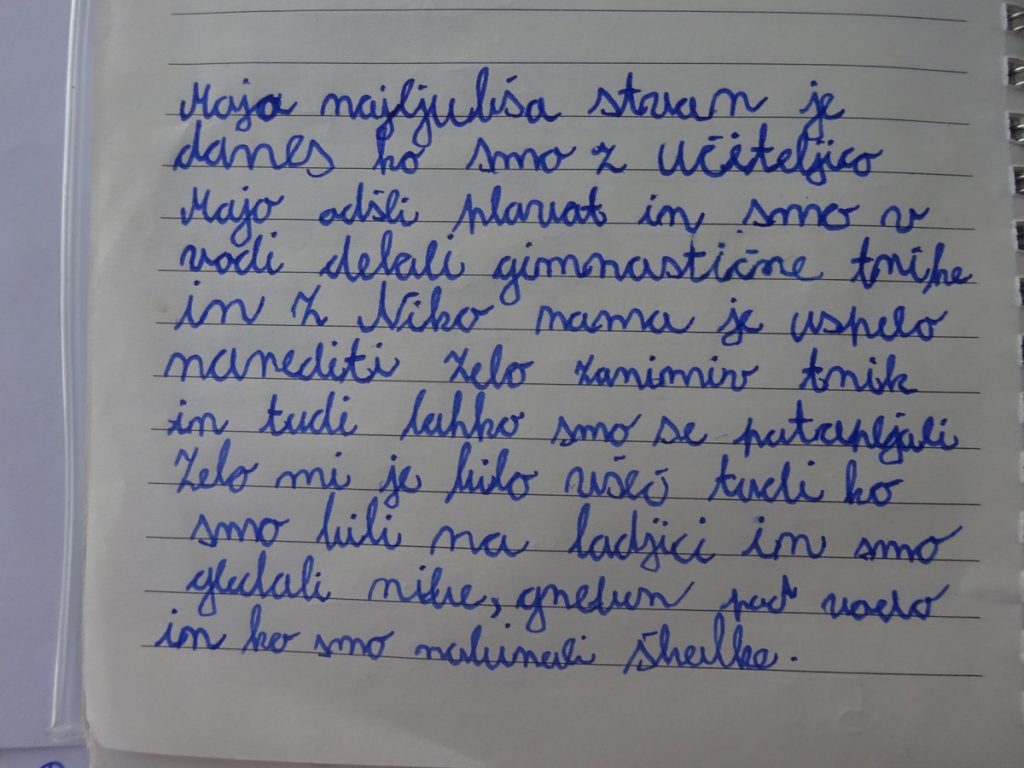 Moja najljubša stvar je
danes ko smo z Učiteljico
Majo odšli plavat in smo v
vodi delali gimnastične trike
in z Niko nama je uspelo
narediti zelo zanimiv trik
in tudi lahko smo se potapljali
Zelo mi je bilo všeč tudi ko
smo bili na ladjici in smo
gledali ribe, greben pod vodo
in ko smo nabirali školke.